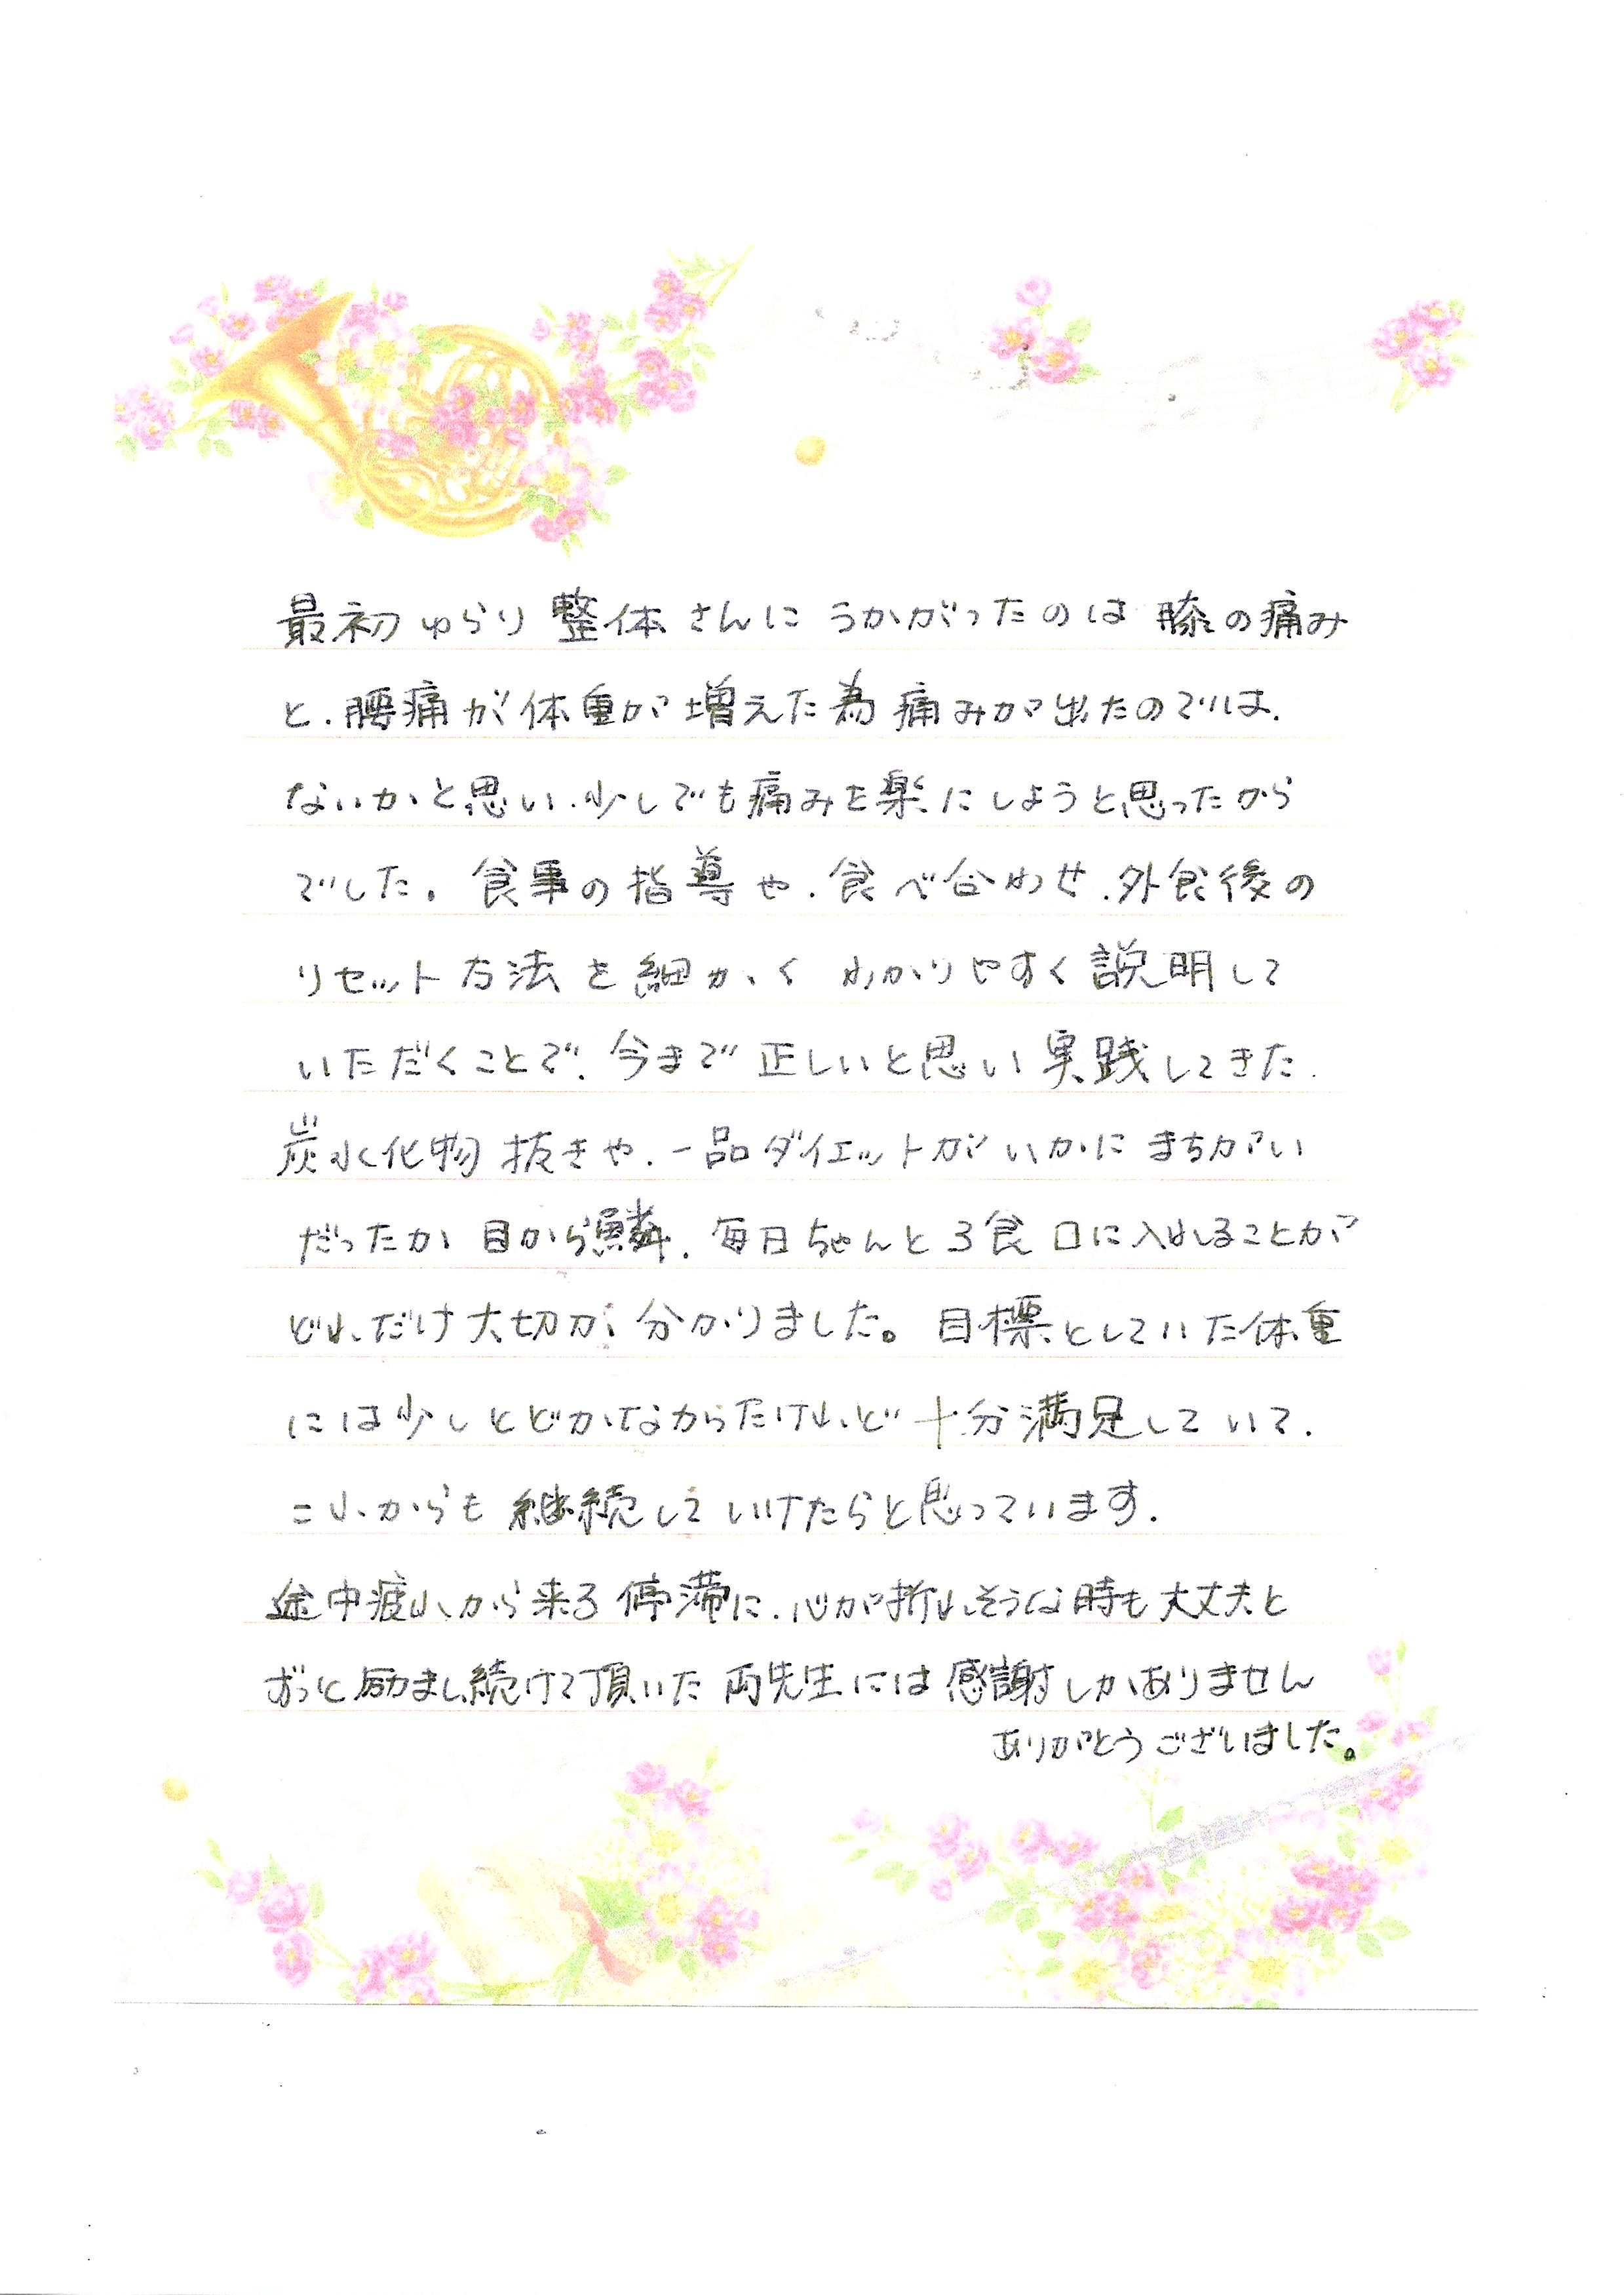 最初ゆらり整体さんにうかがったのは膝の痛み
と、腰痛が体重が増えた為痛みが出たのでは、
ないかと思い、少しでも痛みを楽にしようと思ったから
でした。食事の指導や、食べ合わせ、外食後の
リセット方法を細かくわかりやすく説明して
いただくことで、今まで正しいと思い実践してきた、
炭水化物抜きや、一品ダイエットがいかにまちがい
だったか目から鱗、毎日ちゃんと3食口に入れることが
どれだけ大切か分かりました。目標としていた体重
には少しとどかなからたけれど十分満足していて、
これからも継続していけたらと思っています。
途中疲れから来る停滞に、心が折れそうな時も大丈夫と
ずっと励まし続けて頂いた両先生には感謝しかありません
ありがとうございました。